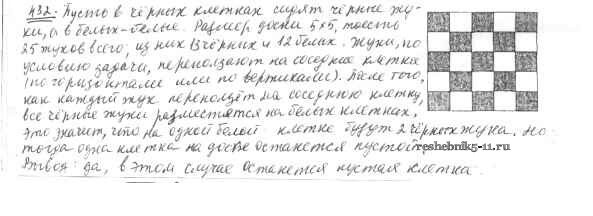 432. Пусть в чёрных клетках сидят чёрные жу-
ки, а в белых-белые. Размер доски 5х5, то есть
25 жуков всего, из них 13 чёрных и 12 белых. Жуки, по
условию задачи, переползают на соседние клетки
(по горизонтали или по вертикали). После того,
как каждый жук переползёт на соседнюю клетку,
все чёрные жуки разместятся на белых клетках,
это значит, что на одной белой клетке будут 2 чёрных жука. Но
тогда одна клетка на доске останется пустой.
reshebnik5-11.ru
Ответ: да, в этом случае останется пустая клетка.